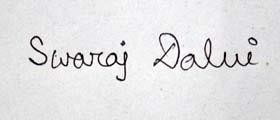 Swaraj Dalvi